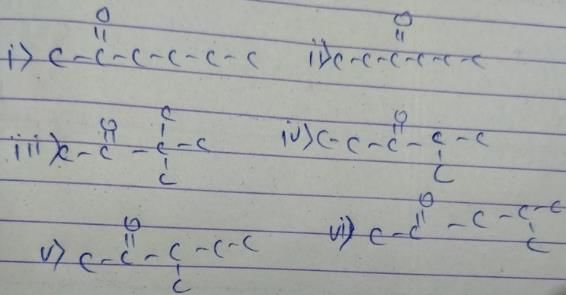 O O
||  ||
i) C-C-C-C-C-C ii) C-C-C-C-C-C
O C O
||  |  ||
iii) C-C-C-C iv) C-C-C-C-C
|  |
C C
O O
||  ||
v) C-C-C-C-C vi) C-C-C-C-C
|  |
C C